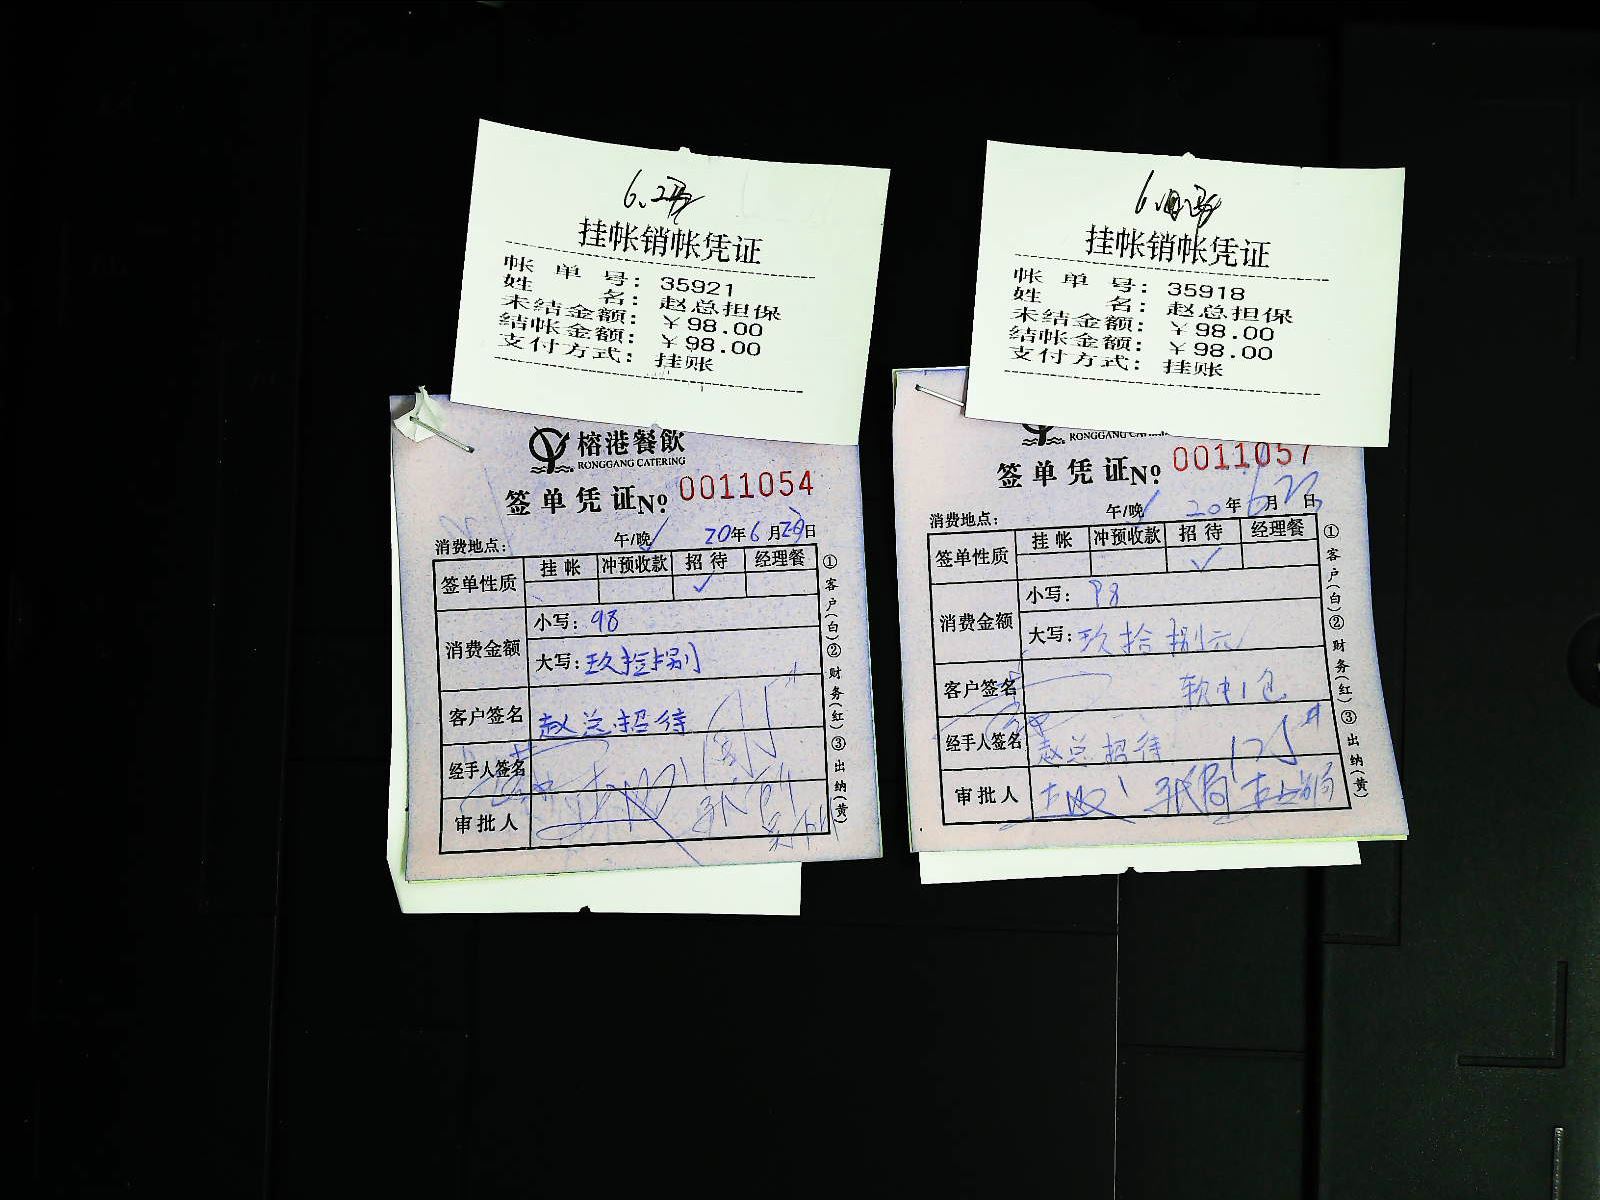 挂帐销帐凭证
帐单号：35921
姓名：赵总担保
未结金额：￥98.00
结帐金额：￥98.00
支付方式：挂账
榕港餐飲
RONGGANG CATERING
签单凭证№ 0011054
消费地点： 午/晚✓ 20年6月 日
签单性质 挂帐 冲预收款 招待 经理餐
✓
消费金额 小写：98
大写：玖拾捌
客户签名 赵总招待
经手人签名
审批人
①客户(白)②财务(红)③出纳(黄)
挂帐销帐凭证
帐单号：35918
姓名：赵总担保
未结金额：￥98.00
结帐金额：￥98.00
支付方式：挂账
RONGGANG
签单凭证№ 0011057
消费地点： 午/晚✓ 20年6月 日
签单性质 挂帐 冲预收款 招待 经理餐
✓
消费金额 小写：98
大写：玖拾捌元
客户签名 软中1包
经手人签名 赵总招待
审批人
①客户(白)②财务(红)③出纳(黄)